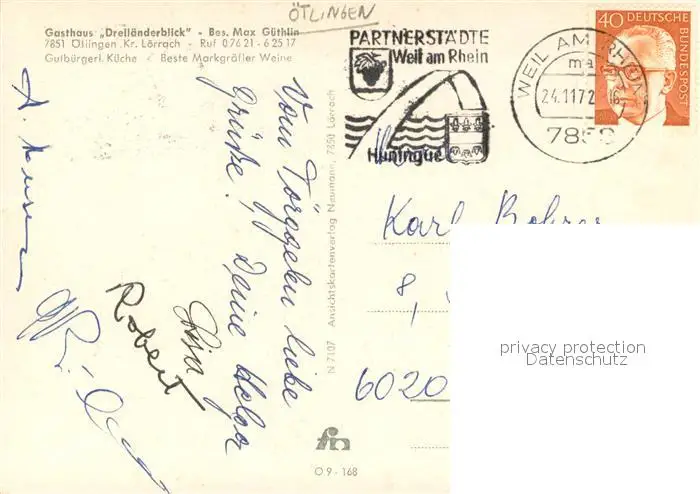 ÖTLINGEN
Gasthaus „Dreiländerblick" - Bes. Max Güthlin
7851 Ötlingen, Kr. Lörrach - Ruf 0 76 21 - 6 25 17
Gutbürgerl. Küche / Beste Markgräfler Weine
PARTNERSTÄDTE
Weil am Rhein
Huningue
WEIL AM RHEIN
24.11.72
7858
40 DEUTSCHE
BUNDESPOST
Vom Törggelen liebe
Grüße. Deine Helga
Robert
N 7107 Ansichtskartenverlag Neumann, 7850 Lörrach
Karl
8,
6020
privacy protection
Datenschutz
O 9 - 168